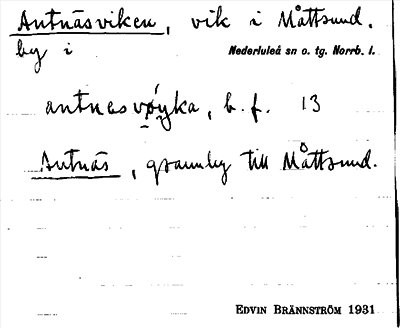 Antnäsviken, vik i Måttsund.
by i Nederluleå sn o. tg. Norrb. l.
antnesvøyka, b. f. 13
Antnäs, grannby till Måttsund.
EDVIN BRÄNNSTRÖM 1931